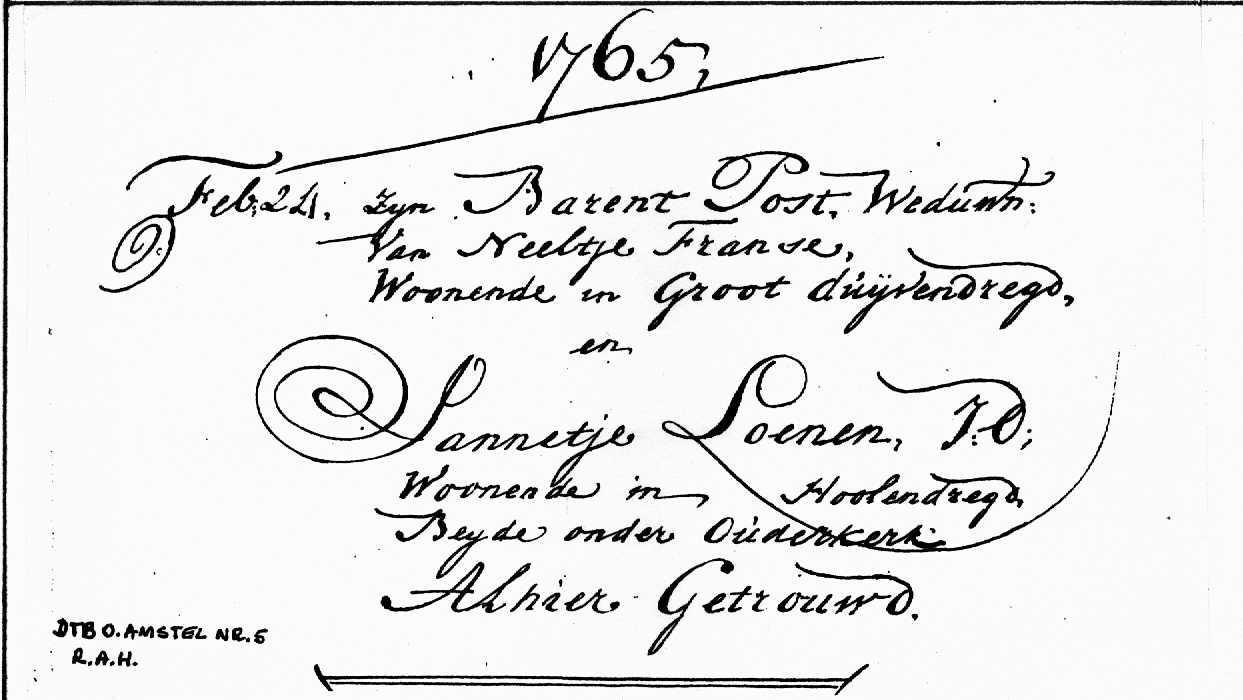 1765,
Feb: 24, zyn Barent Post, Weduwn:
Van Neeltje Franse,
Woonende in Groot duÿvendregd,
en
Jannetje Loenen, J:D:
Woonende in Hoolendregd,
Beyde onder Ouderkerk
Alhier Getrouwd.
DTB O. AMSTEL NR. 5
R.A.H.